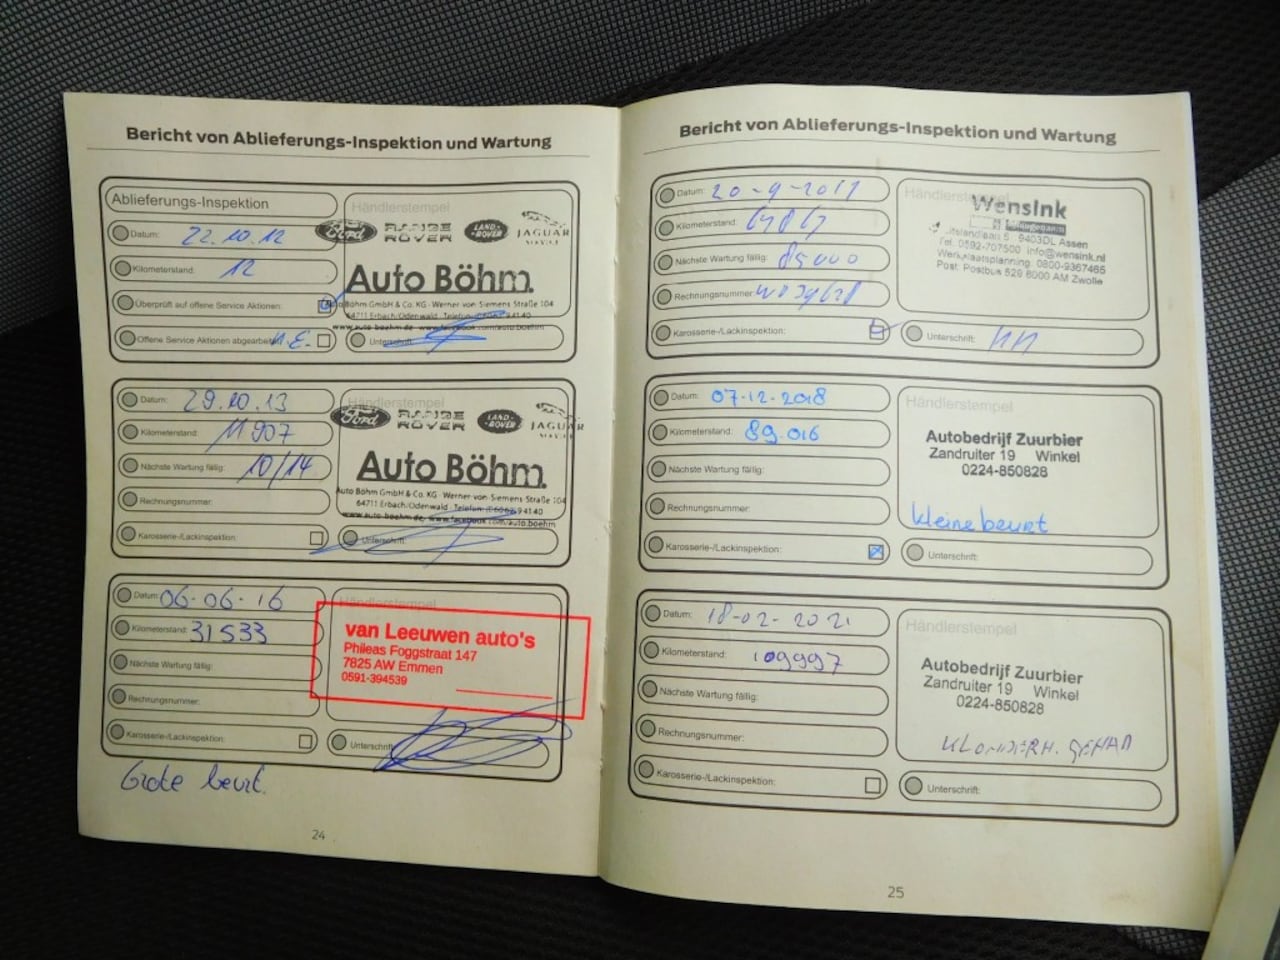 Bericht von Ablieferungs-Inspektion und Wartung
Ablieferungs-Inspektion
Datum: 22.10.12
Kilometerstand: 12
Überprüft auf offene Service Aktionen:
Offene Service Aktionen abgearbeitet
Händlerstempel
Ford RANGE ROVER LAND-ROVER JAGUAR
Auto Böhm.
Auto Böhm GmbH & Co. KG - Werner von Siemens Straße 104
64711 Erbach/Odenwald - Telefon: (06062) 94140
www.auto-boehm.de www.facebook.com/auto.boehm
Unterschrift:
Datum: 29.10.13
Kilometerstand: 11907
Nächste Wartung fällig: 10/14
Rechnungsnummer:
Karosserie-/Lackinspektion:
Händlerstempel
Ford RANGE ROVER LAND-ROVER JAGUAR
Auto Böhm.
Auto Böhm GmbH & Co. KG - Werner von Siemens Straße 104
64711 Erbach/Odenwald - Telefon: (06062) 94140
www.auto-boehm.de, www.facebook.com/auto.boehm
Unterschrift:
Datum: 06-06-16
Kilometerstand: 31533
Nächste Wartung fällig:
Rechnungsnummer:
Karosserie-/Lackinspektion:
Händlerstempel
van Leeuwen auto's
Phileas Foggstraat 147
7825 AW Emmen
0591-394539
Unterschrift:
Grote beurt.
24
Bericht von Ablieferungs-Inspektion und Wartung
Datum: 20-9-2017
Kilometerstand:
Nächste Wartung fällig: 85000
Rechnungsnummer:
Karosserie-/Lackinspektion:
Händlerstempel
Wensink
9403DL Assen
Tel. 0592-707500 info@wensink.nl
Werkplaatsplanning: 0800-9367465
Post: Postbus 529 8000 AM Zwolle
Unterschrift:
Datum: 07-12-2018
Kilometerstand: 89.016
Nächste Wartung fällig:
Rechnungsnummer:
Karosserie-/Lackinspektion:
Händlerstempel
Autobedrijf Zuurbier
Zandruiter 19 Winkel
0224-850828
kleine beurt
Unterschrift:
Datum: 18-02-2021
Kilometerstand: 109997
Nächste Wartung fällig:
Rechnungsnummer:
Karosserie-/Lackinspektion:
Händlerstempel
Autobedrijf Zuurbier
Zandruiter 19 Winkel
0224-850828
Unterschrift:
25